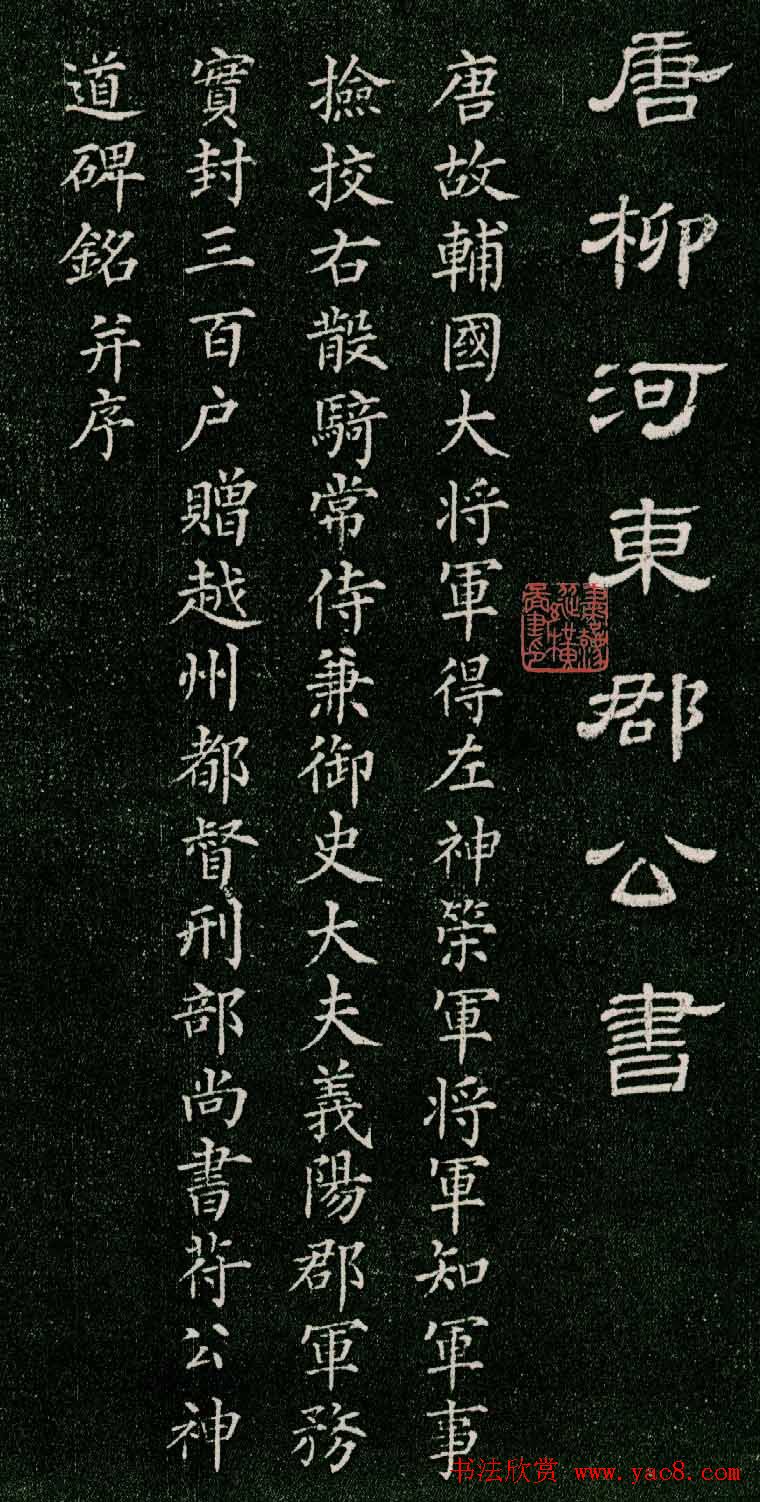 唐柳河東郡公書
唐故輔國大将軍得左神策軍将軍知軍事
撿挍右散騎常侍兼御史大夫義陽郡軍務
實封三百户贈越州都督刑部尚書苻公神
道碑銘并序
书法欣赏 www.yac8.com